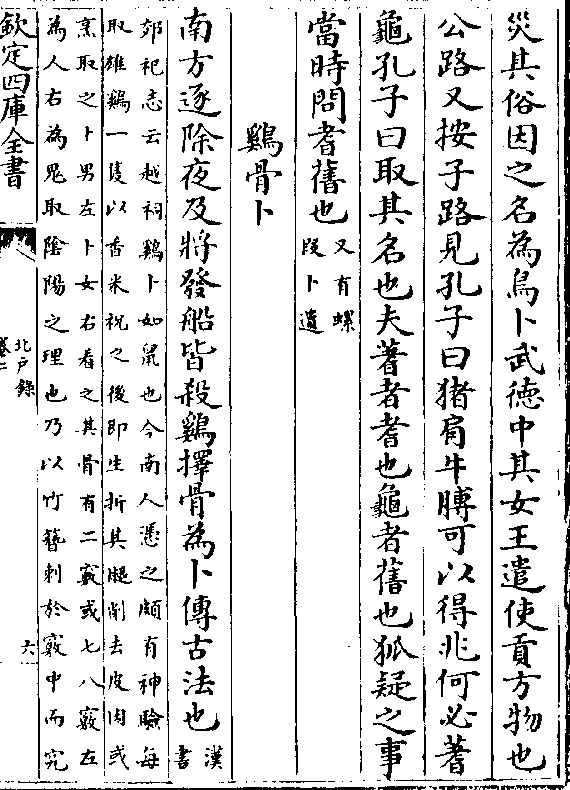 災其俗因之名為鳥卜武徳中其女王遣使貢方物也
公路又按子路見孔子曰猪肩牛膊可以得兆何必蓍
龜孔子曰取其名也夫蓍者耆也龜者舊也狐疑之事
當時問耆舊也又有螺
段卜遺
鷄骨卜
南方逐除夜及將發船皆殺鷄擇骨為卜傳古法也漢
書
郊祀志云越祠鷄卜如鼠也今南人憑之頗有神驗每
取雄鷄一隻以香米祝之後即生折其腿削去皮肉或
烹取之卜男左卜女右看之其骨有二竅或七八竅左
為人右為鬼取陰陽之理也乃以竹簪刺於竅中而究
欽定四庫全書
北戸錄
卷二
六